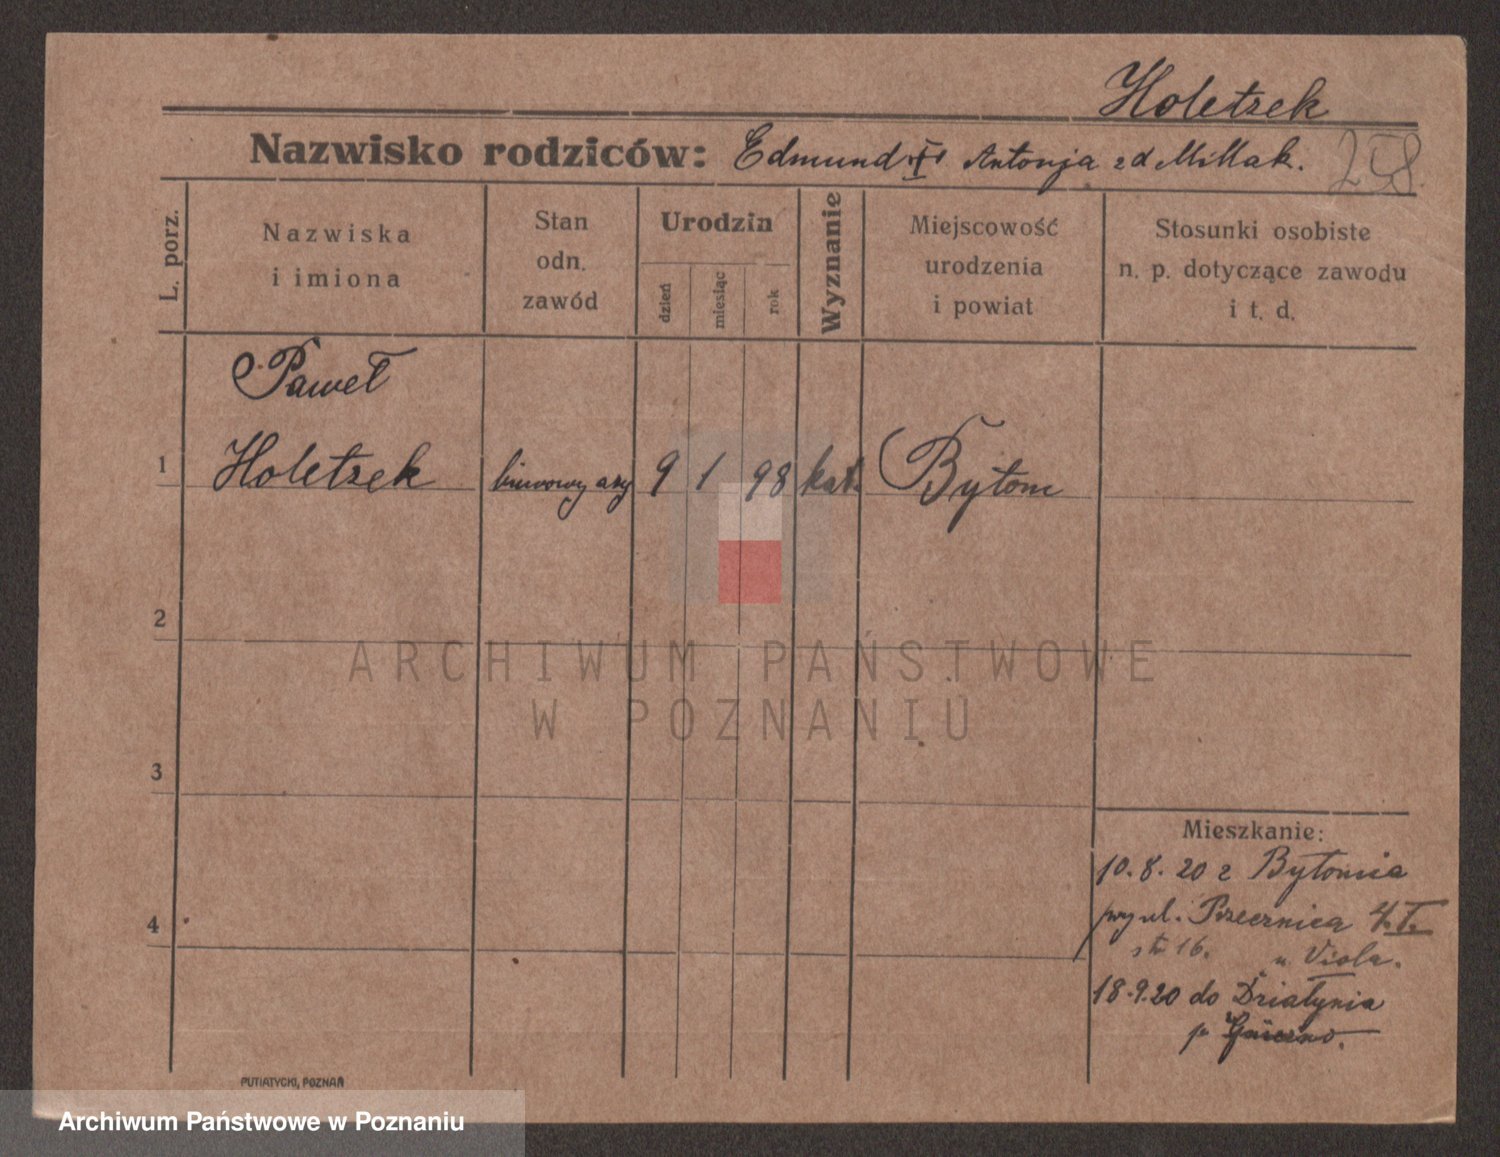 Holetzek
Nazwisko rodziców: Edmund i Antonja zd Mi Mak.
258.
L. porz.
Nazwiska
i imiona
Stan
odn.
zawód
Urodzin
dzień
miesiąc
rok
Wyznanie
Miejscowość
urodzenia
i powiat
Stosunki osobiste
n. p. dotyczące zawodu
i t. d.
Paweł
1 Holetzek biurowy 9 1 98 kat. Bytom
2
3
4
ARCHIWUM PAŃSTWOWE
W POZNANIU
Mieszkanie:
10.8.20 z Bytomia
przy ul. Przecznica 4. I.
str 16. u Viola.
18.9.20 do Działynia
p Gniezno.
PUTIATYCKI, POZNAŃ
Archiwum Państwowe w Poznaniu